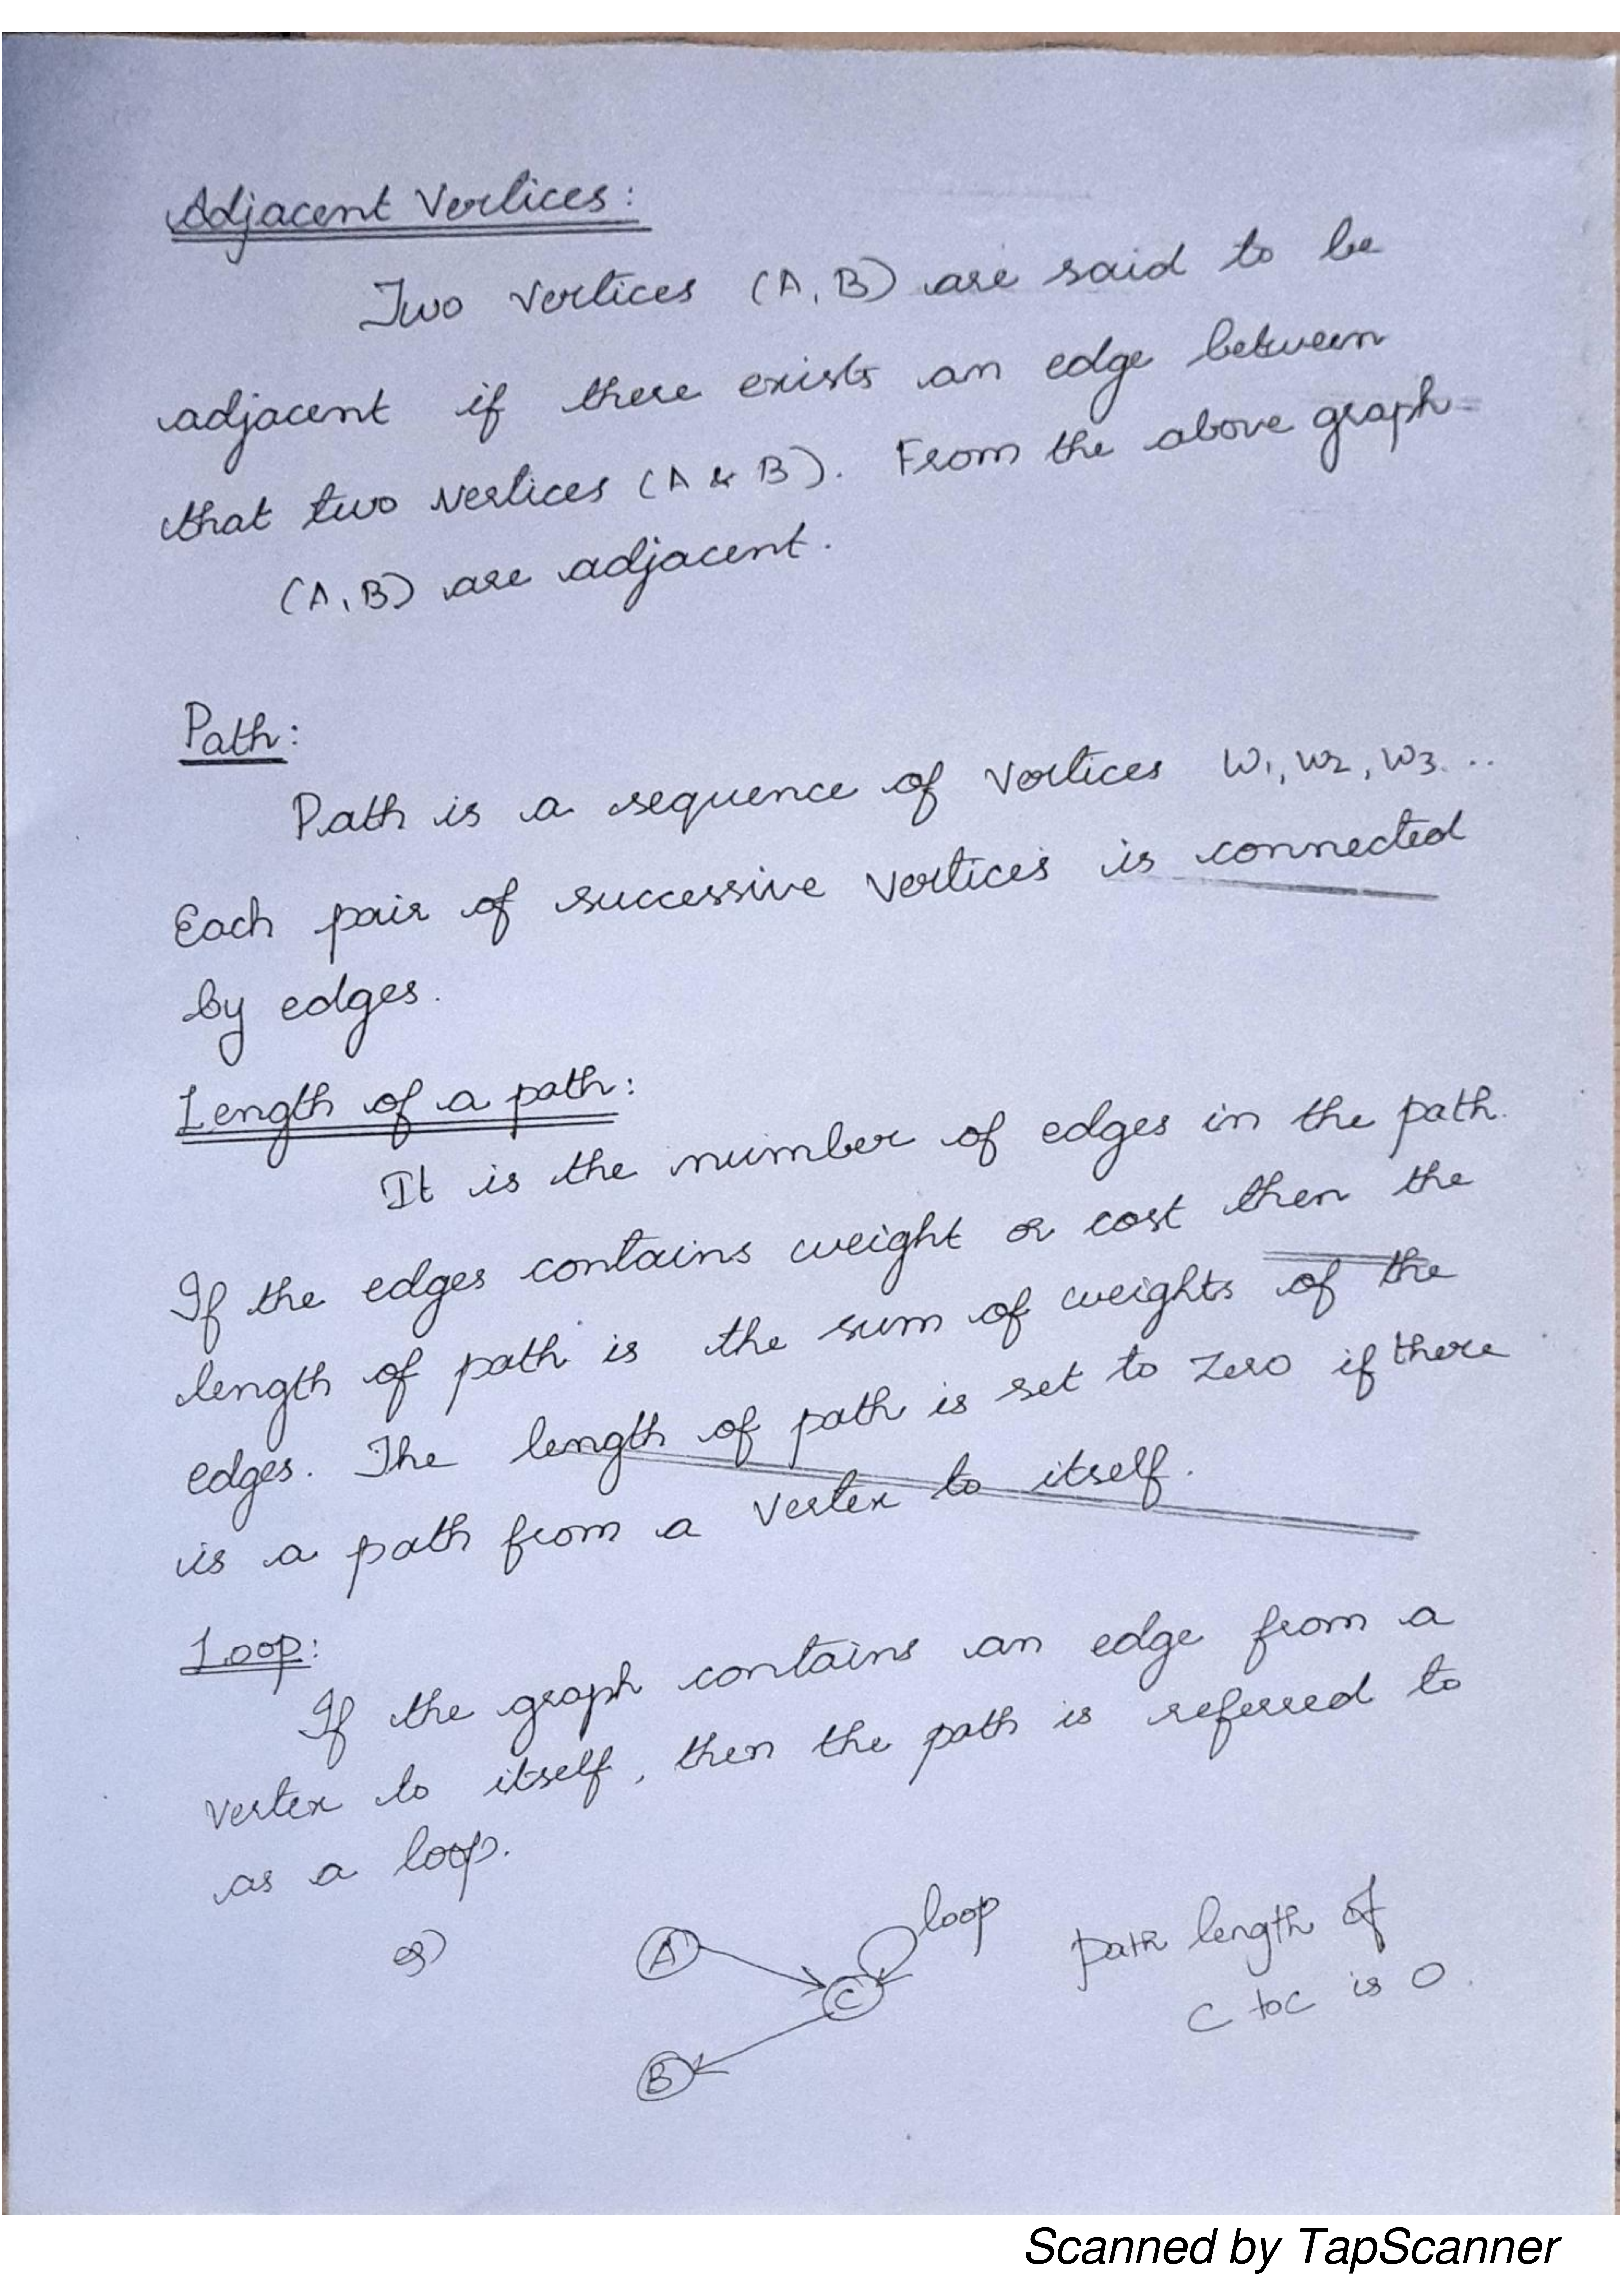 Adjacent Vertices:
Two vertices (A, B) are said to be
adjacent if there exists an edge between
that two vertices (A & B). From the above graph
(A, B) are adjacent.
Path:
Path is a sequence of vertices w1, w2, w3...
Each pair of successive vertices is connected
by edges.
Length of a path:
It is the number of edges in the path.
If the edges contains weight or cost then the
length of path is the sum of weights of the
edges. The length of path is set to zero if there
is a path from a vertex to itself.
Loop:
If the graph contains an edge from a
vertex to itself, then the path is referred to
as a loop.
eg)
A
loop
path length of
C
C to C is 0.
B
Scanned by TapScanner